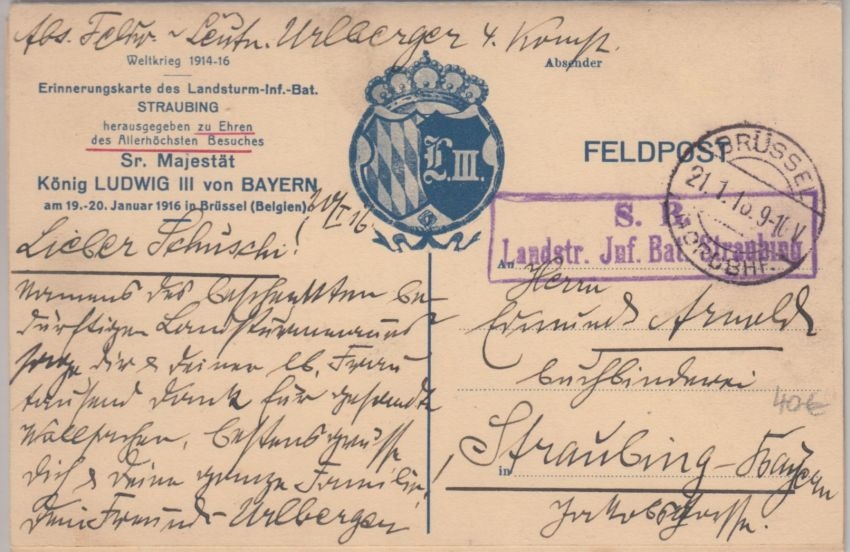 Abs. Feldw. ~ Leutn. Urlberger 4. Komp.
Absender
Weltkrieg 1914-16
Erinnerungskarte des Landsturm-Inf.-Bat.
STRAUBING
herausgegeben zu Ehren
des Allerhöchsten Besuches
Sr. Majestät
König LUDWIG III von BAYERN
am 19.-20. Januar 1916 in Brüssel (Belgien)
L. III.
FELDPOST
BRÜSSEL
21.1.16. 9-10 V
NORDBHF.
S. B.
Landstr. Inf. Bat. Straubing
20/I 16
Lieber Schuschi!
Namens des beschenkten be-
dürftigen Landsturmmannes
sage dir & deiner lb. Frau
tausend Dank für gesandte
Wollsachen, bestens grüsse
dich & deine ganze Familie!
dein Freund Urlberger
An Herrn
Edmund Arnold
Buchbinderei
in Straubing-Bayern
Jakobsgasse.
40€